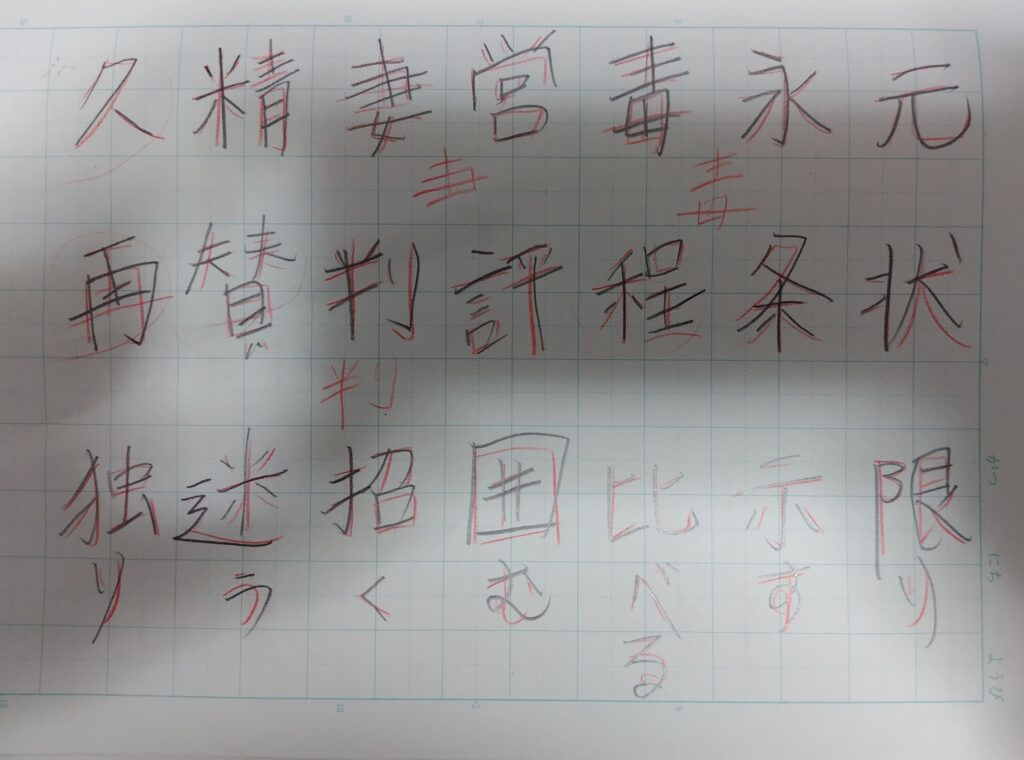 がつ にち ようび
元 状 限り
永 条 示す
毒
毒 程 比べる
営 評 囲む
妻 判 判 招く
精 賛 迷う
久 再 独り